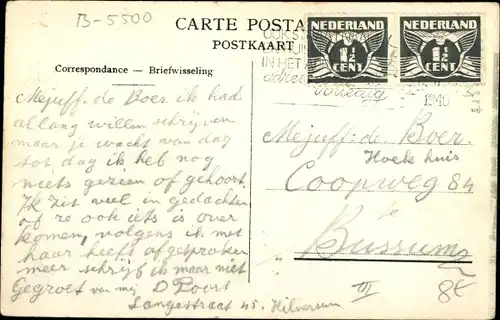 B-5500
CARTE POSTA
POSTKAART
Correspondance — Briefwisseling
NEDERLAND
1½
CENT
NEDERLAND
1½
CENT
OOK S
IN HET A
adres
volledig
1940
Mejuff. de Boer ik had
allang willen schrijven
maar je wacht van dag
tot dag ik heb nog
niets gezien of gehoort.
Ik zit veel in gedachten
of ze ook iets is over
komen, volgens ik met
haar heeft afgesproken
meer schrijf ik maar niet
Gegroet van mij D Poort
Langestraat 45. Hilversum
Mejuff: de Boer.
Hoek huis
Coopweg 84
te
Bussum
III
8€